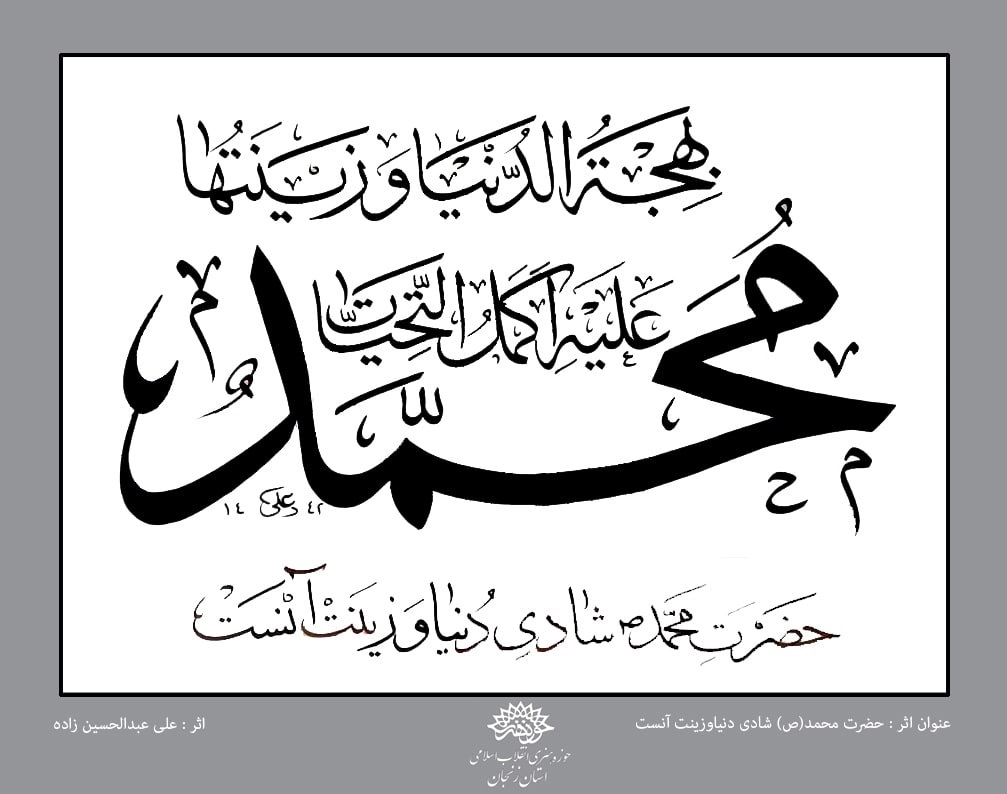 بَهجَةُ الدُّنْیا وَ زینَتُها
عَلَیْهِ اَکمَلُ التَّحِیّاتِ
مُحَمَّدٌ
علی ١٤٤٢
حَضرَتِ مُحَمَّد ص شادیِ دُنیا وَ زینَتْ آنْسَتْ
عنوان اثر : حضرت محمد(ص) شادی دنیاوزینت آنست
اثر : علی عبدالحسین زاده
حوزه هنری
حوزه هنری انقلاب اسلامی
استان زنجان